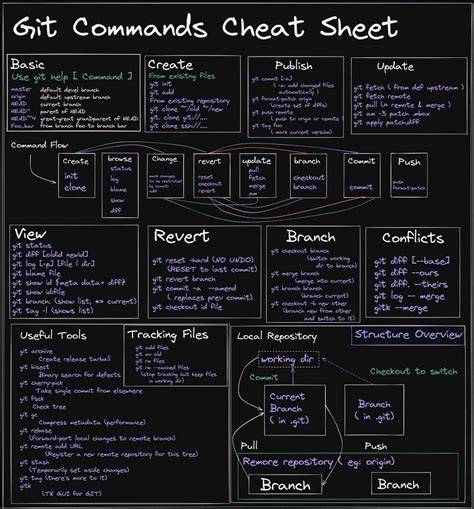 Git Commands Cheat Sheet
Basic
Use git help [ Command ]
master default devel branch
origin default upstream branch
HEAD current branch
HEAD^ parent of HEAD
HEAD~4 great-great grandparent of HEAD
foo..bar from branch foo to branch bar
Create
From existing files
git init
git add
From existing repository
git clone ~/old ~/new
git clone git://...
git clone ssh://...
Publish
git commit [-a]
(-a: add changed files
automatically)
git format-patch origin
(create set of diffs)
git push remote
(push to origin or remote)
git tag foo
(mark current version)
Update
git fetch ( from def upstream )
git fetch remote
git pull (= remote & merge )
git am -3 patch.mbox
git apply patch.diff
Command Flow
Create
init
clone
browse
status
log
blame
show
diff
Change
mark changes
to be restricted
by commit:
add
revert
reset
checkout
revert
update
pull
fetch
merge
am
branch
checkout
branch
Commit
commit
Push
push
format-patch
View
git status
git diff [oldid newid]
git log [-p] [file | dir]
git blame file
git show id [meta data+ diff]
git show id:file
git branch (show list, *= current)
git tag -l (shows list)
Revert
git reset --hard (NO UNDO)
(RESET to last commit)
git revert branch
git commit -a --amend
( replaces prev commit)
git checkout id file
Branch
git checkout branch
(switch working
dir to branch)
git merge branch
(merge into current)
git branch branch
(branch current)
git checkout -b new other
(branch new from other
and switch to it)
Conflicts
git diff [--base]
git diff --ours
git diff --theirs
git log -- merge
gitk -- merge
Useful Tools
git archive
Create release tarball
git bisect
Binary search for defects
git cherry-pick
Take single commit from elsewhere
git fsck
Check tree
git gc
Compress metadata (performance)
git rebase
(Forward-port local changes to remote branch)
git remote add URL
(Register a new remote repository for this tree)
git stash
(Temporarily set aside changes)
git tag (there's more to it)
gitk
(TK GUI for GIT)
Tracking Files
git add files
git mv old
git rm files
git rm --cached files
(stop tracking but keep files
in working dir)
Local Repository
Structure Overview
working dir
Commit
Checkout to switch
Current
Branch
( in .git)
Branch
( in .git)
Pull
Push
Remore repository ( eg: origin)
Branch
Branch